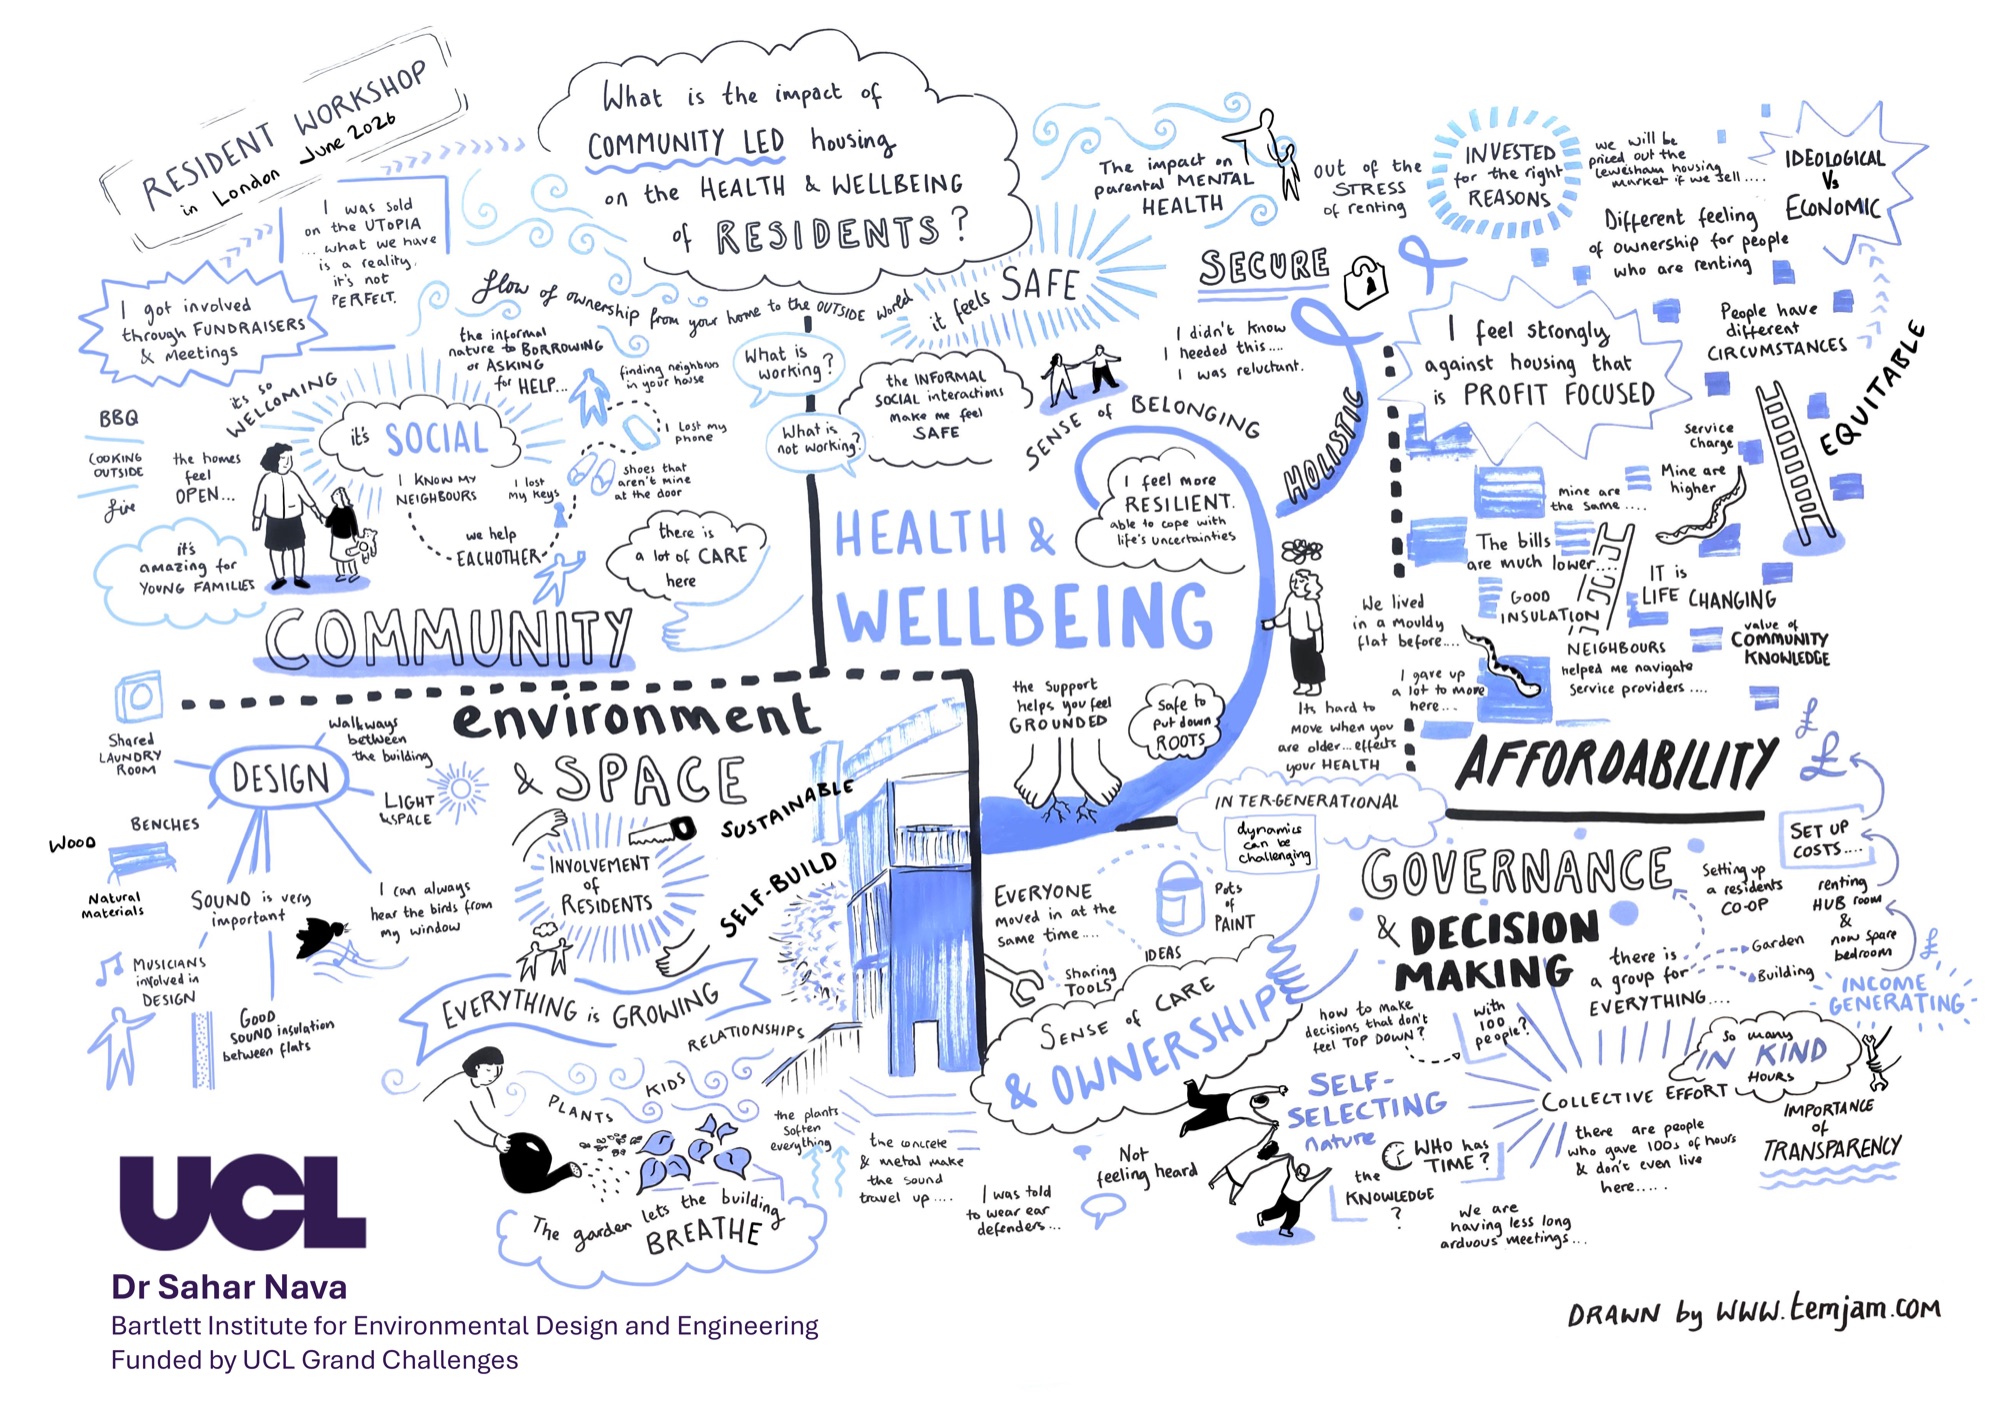 RESIDENT WORKSHOP
in London June 2026
What is the impact of
COMMUNITY LED housing
on the HEALTH & WELLBEING
of RESIDENTS?
I was sold
on the UTOPIA
... what we have
is a reality.
it's not
PERFECT.
I got involved
through FUNDRAISERS
& Meetings
flow of ownership from your home to the OUTSIDE world
the informal
nature to BORROWING
or ASKING
for HELP...
finding neighbours
in your house
it's so
WELCOMING
it's SOCIAL
BBQ
COOKING
OUTSIDE
fire
the homes
feel
OPEN...
I KNOW MY
NEIGHBOURS
I lost
my keys
I lost my
phone
shoes that
aren't mine
at the door
we help
EACHOTHER
it's
amazing for
YOUNG FAMILIES
there is
a lot of CARE
here
COMMUNITY
What is
working?
What is
not working?
it feels SAFE
the INFORMAL
SOCIAL interactions
make me feel
SAFE
SENSE of BELONGING
The impact on
parental MENTAL
HEALTH
out of the
STRESS
of renting
SECURE
I didn't know
I needed this....
I was reluctant.
HOLISTIC
HEALTH &
WELLBEING
I feel more
RESILIENT.
able to cope with
life's uncertainties
the support
helps you feel
GROUNDED
Safe to
put down
ROOTS
We lived
in a mouldy
flat before....
I gave up
a lot to move
here...
Its hard to
move when you
are older... effects
your HEALTH
INVESTED
for the right
REASONS
we will be
priced out the
Lewesham housing
market if we sell....
IDEOLOGICAL
Vs
ECONOMIC
Different feeling
of ownership for people
who are renting
I feel strongly
against housing that
is PROFIT FOCUSED
People have
different
CIRCUMSTANCES
EQUITABLE
Service
Charge
Mine are
higher
Mine are
the same....
The bills
are much lower....
GOOD
INSULATION
IT is
LIFE CHANGING
NEIGHBOURS
helped me navigate
service providers ....
value of
COMMUNITY
KNOWLEDGE
AFFORDABILITY
£
£
environment
& SPACE
DESIGN
Shared
LAUNDRY
ROOM
Walkways
between
the building
LIGHT
& SPACE
BENCHES
WOOD
Natural
materials
SOUND is very
important
I can always
hear the birds from
my window
MUSICIANS
involved in
DESIGN
GOOD
SOUND insulation
between flats
INVOLVEMENT
of
RESIDENTS
SUSTAINABLE
SELF-BUILD
EVERYTHING is GROWING
RELATIONSHIPS
KIDS
PLANTS
the plants
soften
everything
The garden lets the building
BREATHE
the concrete
& metal make
the sound
travel up....
I was told
to wear ear
defenders...
INTER-GENERATIONAL
dynamics
can be
challenging
EVERYONE
moved in at the
same time....
Pots
of
PAINT
IDEAS
Sharing
TOOLS
SENSE of CARE
& OWNERSHIP
Not
feeling heard
GOVERNANCE
& DECISION
MAKING
Setting up
a residents
CO-OP
SET UP
COSTS....
renting
HUB room
&
now spare
bedroom
£
INCOME
GENERATING
there is
a group for
EVERYTHING....
Garden
Building
how to make
decisions that don't
feel TOP DOWN?
with
100
people?
SELF-
SELECTING
nature
WHO has
TIME?
the
KNOWLEDGE
?
COLLECTIVE EFFORT
So many
IN KIND
HOURS
there are people
who gave 100s of hours
& don't even live
here.....
IMPORTANCE
of
TRANSPARENCY
We are
having less long
arduous meetings...
UCL
Dr Sahar Nava
Bartlett Institute for Environmental Design and Engineering
Funded by UCL Grand Challenges
DRAWN by WWW.temjam.COM